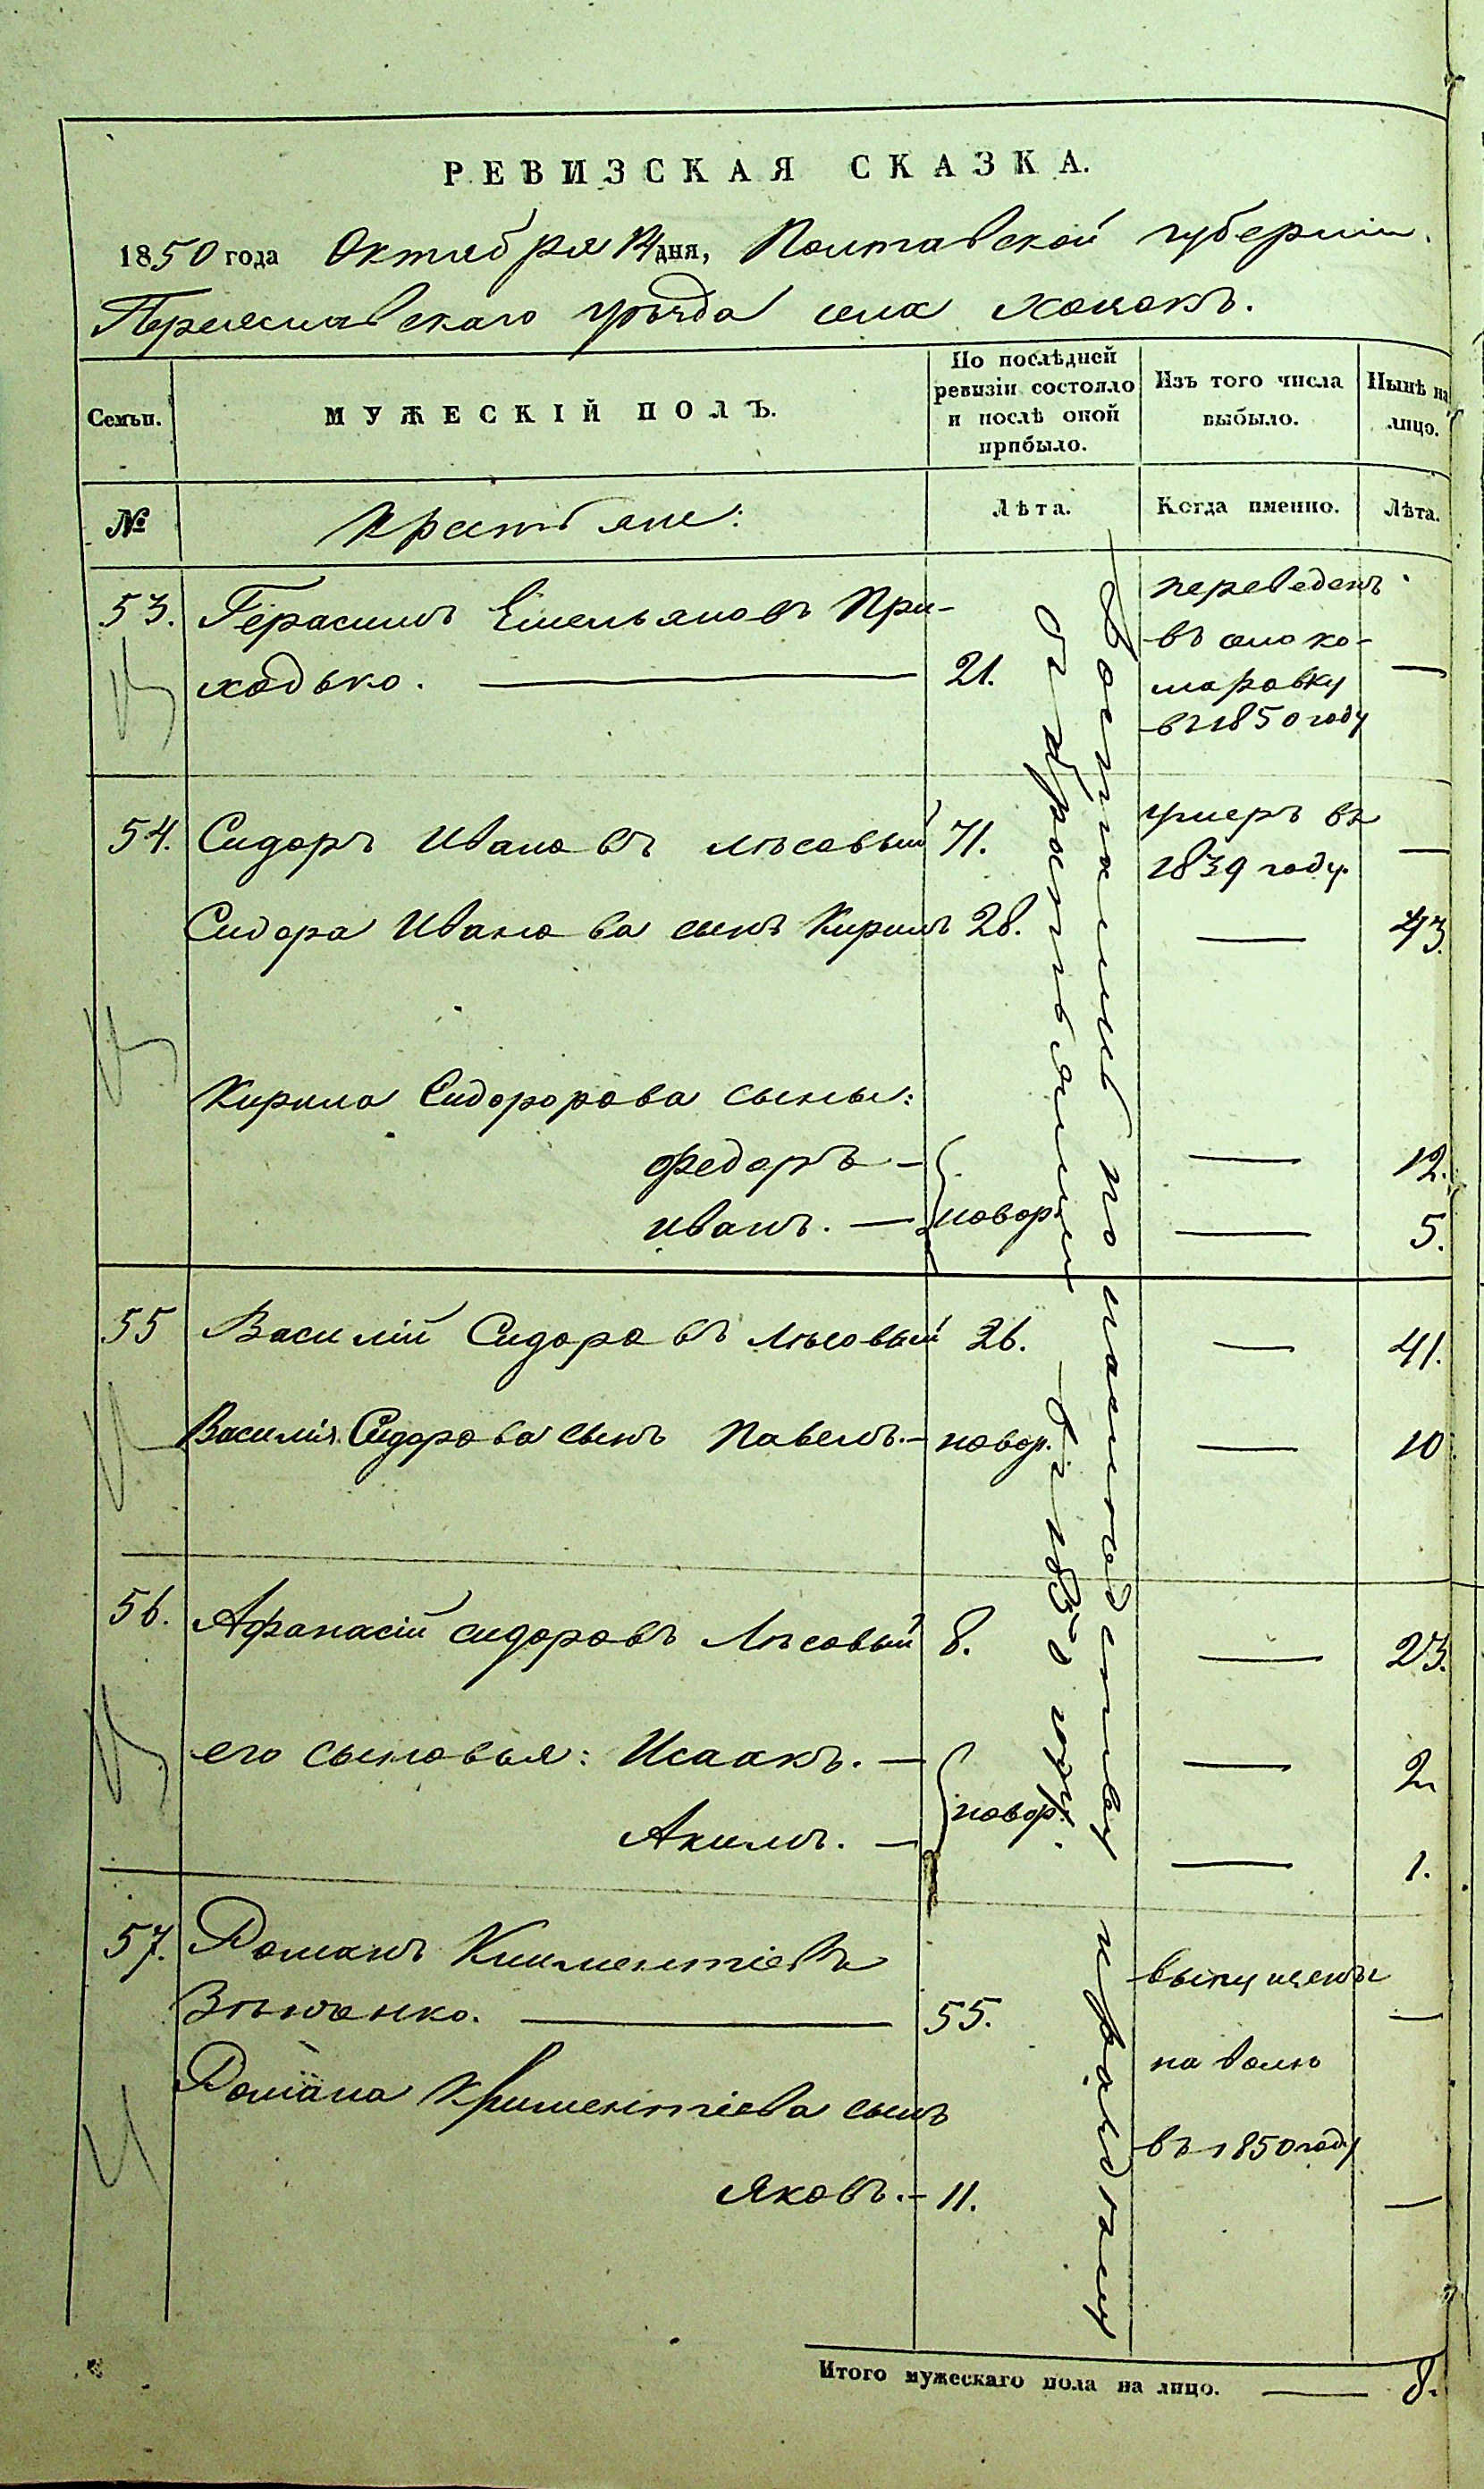 РЕВИЗСКАЯ СКАЗКА.
1850 года Октября 14 дня, Полтавской губернии.
Переяславскаго уѣзда села Хоцокъ.
Семьи.
МУЖЕСКІЙ ПОЛЪ.
По послѣдней
ревизіи состояло
и послѣ оной
прибыло.
Изъ того числа
выбыло.
Нынѣ на
лицо.
№
Крестьяне:
Лѣта.
Когда именно.
Лѣта.
53. Герасимъ Емельяновъ При-
ходько. — 21. —
переведенъ
въ село ко-
маровку
въ 1850 году
54. Сидоръ Ивановъ Лѣсовый 71. —
умеръ въ
1839 году.
Сидора Иванова сынъ Кирилъ 28. — 43.
Кирила Сидоророва сыны:
Федоръ — — 12.
Иванъ. — новор. — 5.
55 Василій Сидоровъ Лѣсовый 26. — 41.
Василія Сидорова сынъ Павелъ. — новор. — 10
56. Афанасій Сидоровъ Лѣсовый 8. — 23.
его сыновья: Исаакъ. — — 2
Акимъ. — новор. — 1.
57. Романъ Климентіевъ
55. —
Романа Климентіева сынъ
Яковъ. — 11. —
выпущены
на волю
въ 1850 году
достались по наслѣдству
съ братьями въ 1835 году.
Итого мужескаго пола на лицо. — 8.